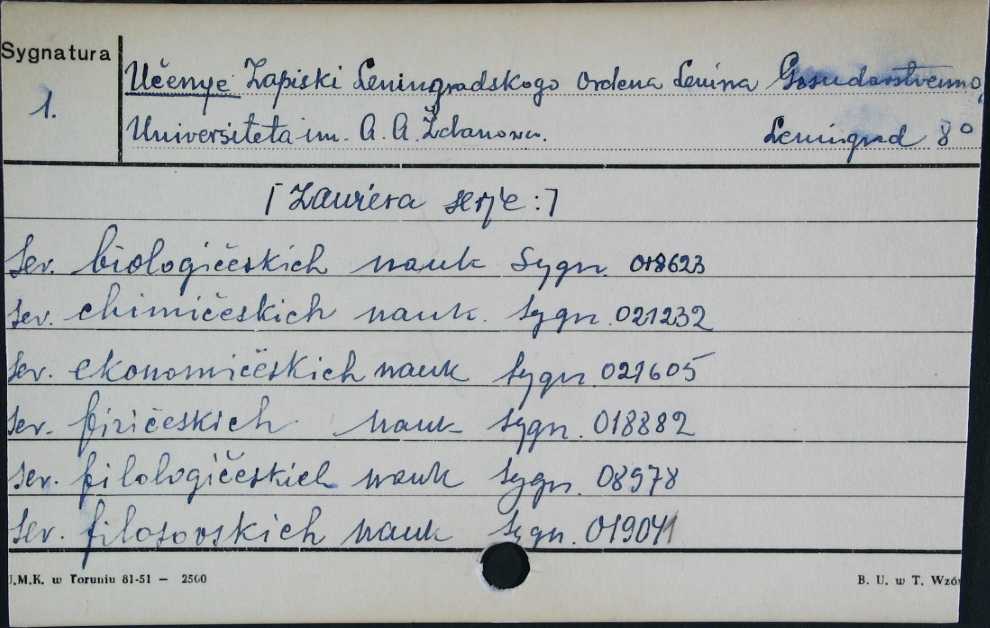 Sygnatura
1.
Učenye Zapiski Leningradskogo Ordena Lenina Gosudarstvenno,
Universiteta im. A. A. Ždanova. Leningrad 8°
[Zawiera serje:]
Ser. biologičeskich nauk Sygn. 018623
Ser. chimičeskich nauk. Sygn. 021232
Ser. ekonomičeskich nauk Sygn. 021605
Ser. fizičeskich nauk Sygn. 018882
Ser. filologičeskich nauk Sygn. 08978
Ser. filosovskich nauk Sygn. 019041
U.M.K. w Toruniu 81-51 — 2500 B. U. w T. Wzór